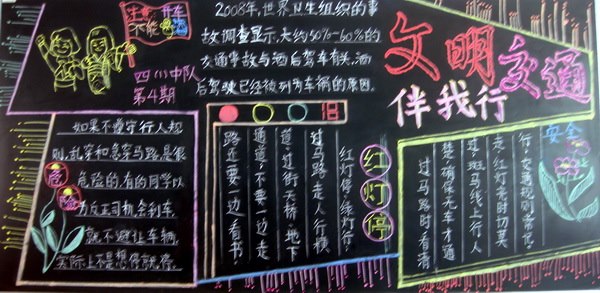 开车
不能喝酒
四(1)中队
第4期
2008年,世界卫生组织的事
故调查显示,大约50%-60%的
交通事故与酒后驾车有关,酒
后驾驶已经被列为车祸的原因。
文明交通
伴我行
如果不遵守行人规
则,乱穿和急穿马路是很
危险的,有的同学以
为反正司机会刹车,
就不避让车辆,
实际上不是想停就停。
危险
红灯停
红灯停,绿灯行,
过马路走人行横
道;过街天桥、地下
通道;不要一边走
路还要一边看书
过马路时看清
楚;确保无车才通
过;斑马线上行人
走,红灯亮时切莫
行;交通规则常记
安全